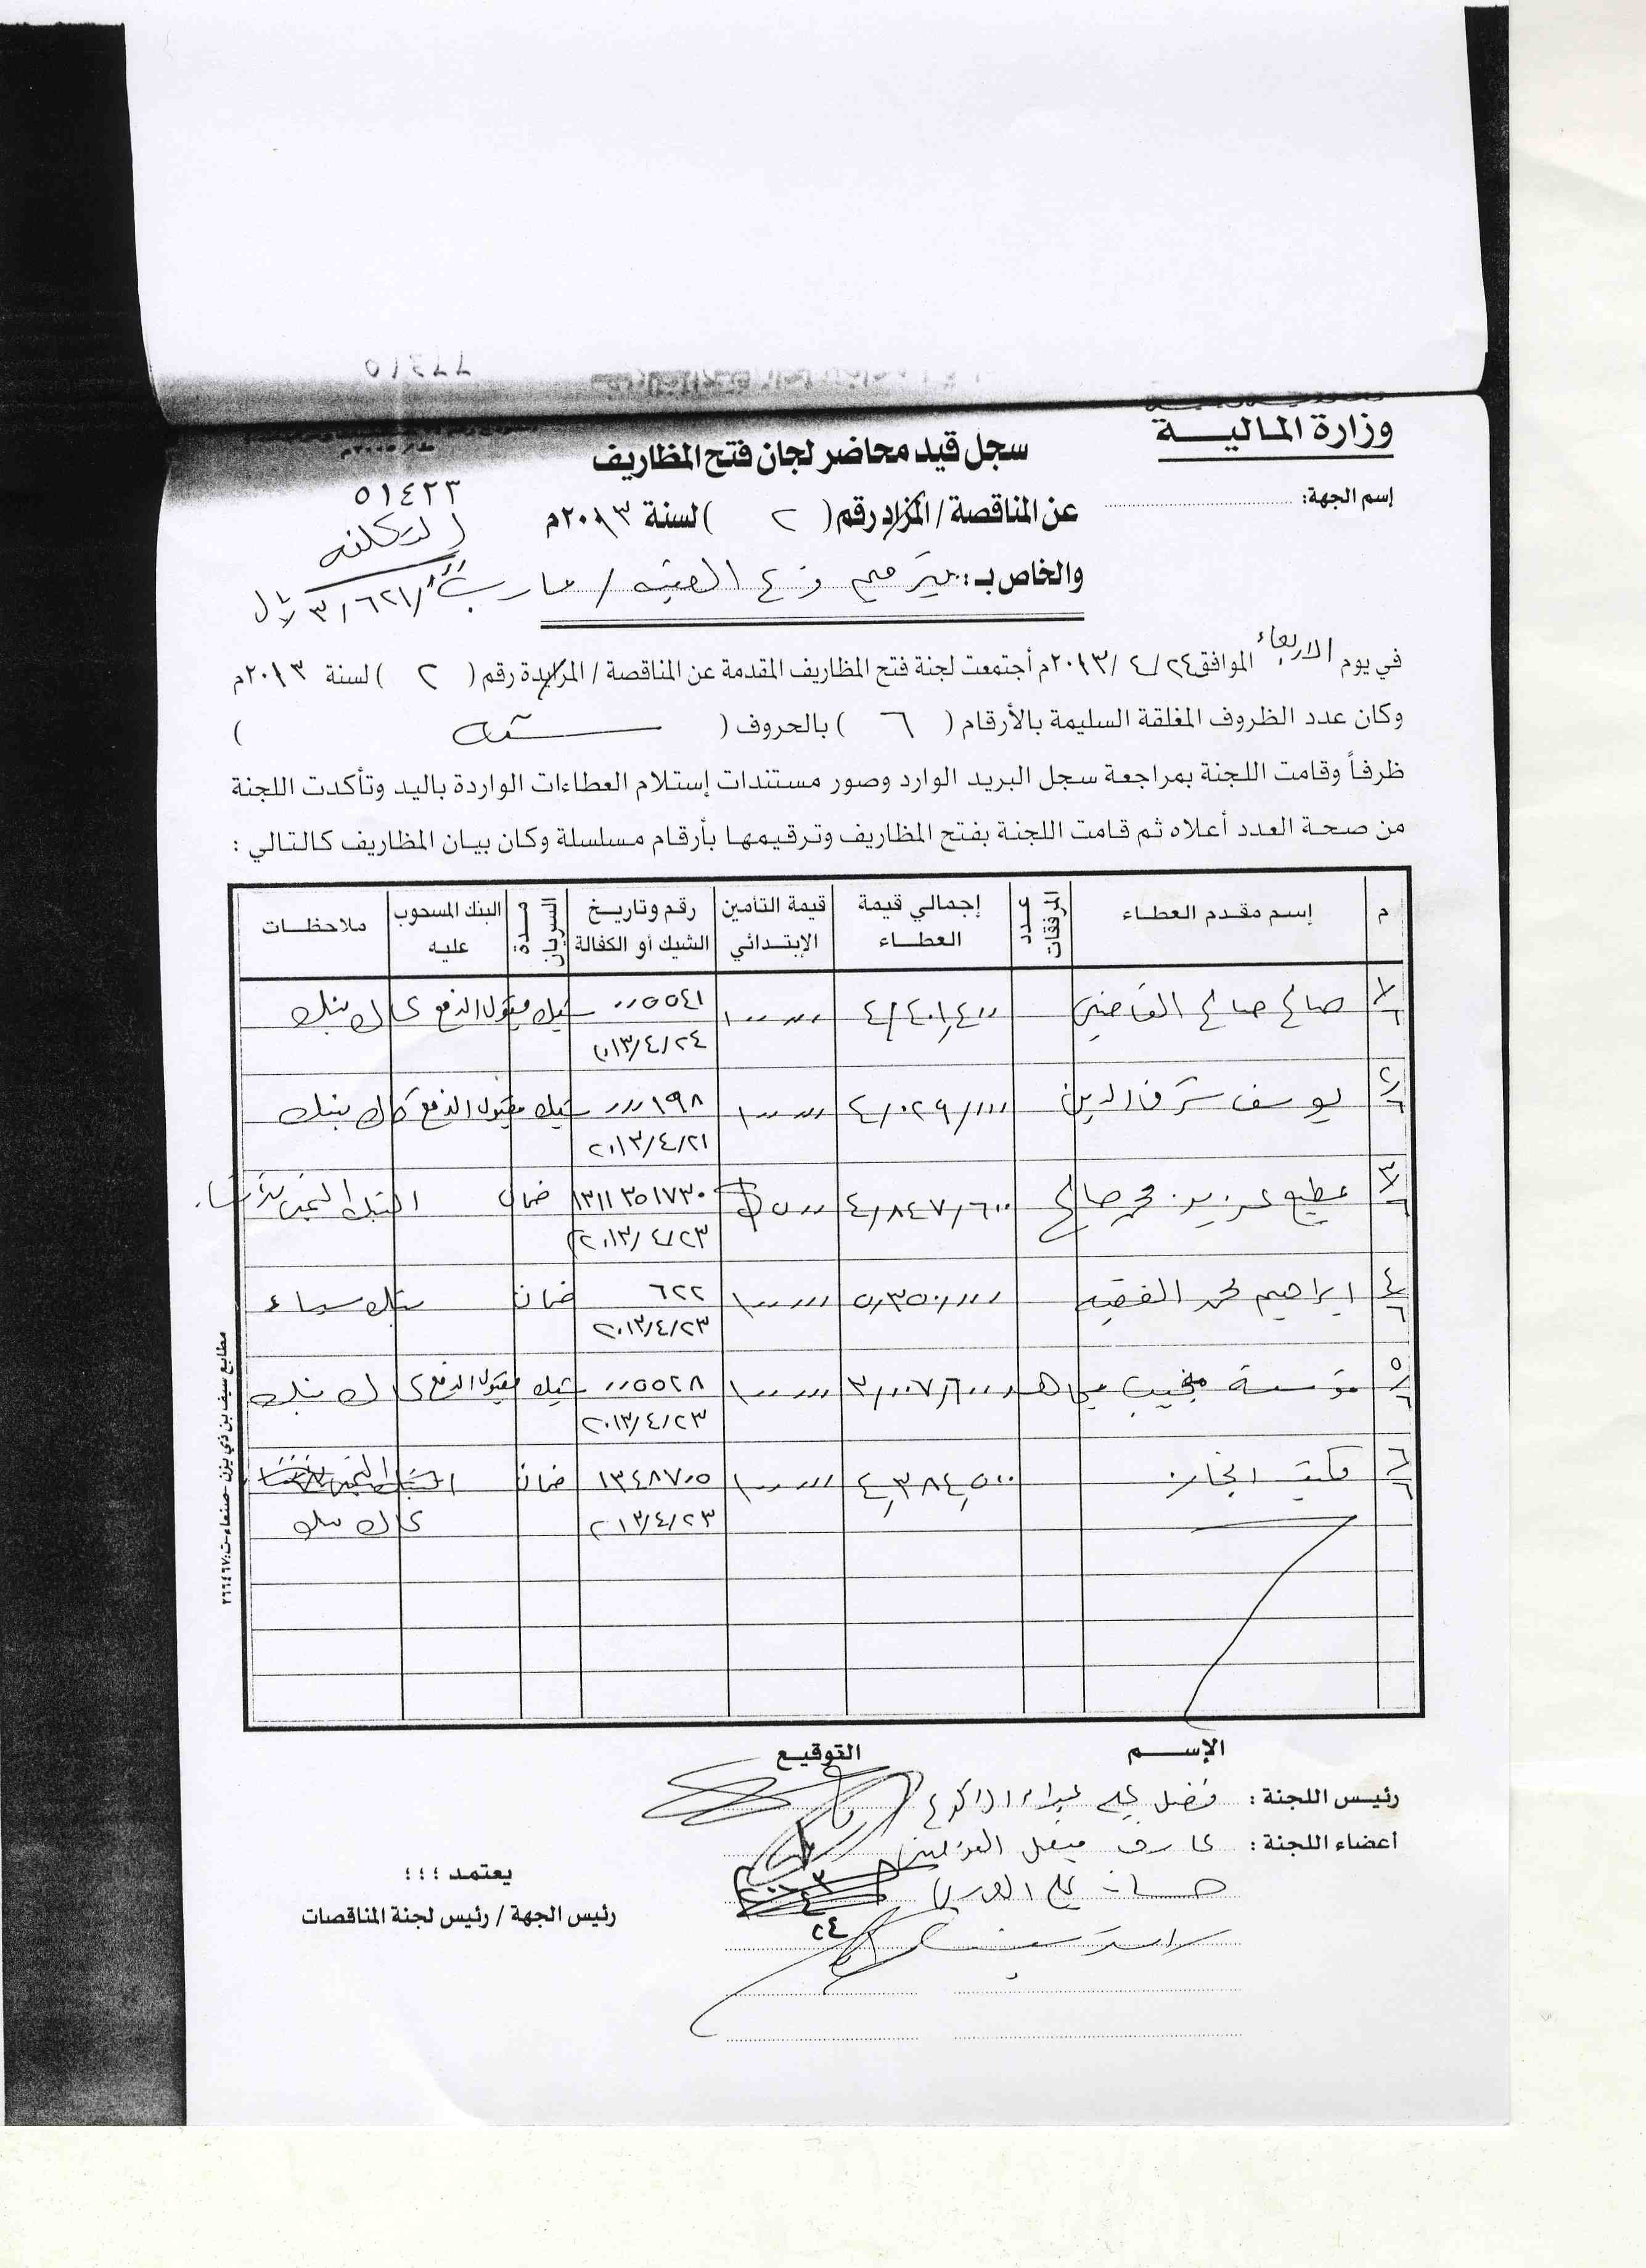 وزارة المالية
سجل قيد محاضر لجان فتح المظاريف
إسم الجهة:
٥١٤٢٣
عن المناقصة / المزاد رقم ( ٢ ) لسنة ٢٠١٣م
والخاص بـ: ترميم فرع / مارب
في يوم الاربعاء الموافق ٢٤/ ٤ /٢٠١٣م أجتمعت لجنة فتح المظاريف المقدمة عن المناقصة / المزايدة رقم ( ٢ ) لسنة ٢٠١٣م
وكان عدد الظروف المغلقة السليمة بالأرقام ( ٦ ) بالحروف ( ستة )
ظرفاً وقامت اللجنة بمراجعة سجل البريد الوارد وصور مستندات إستلام العطاءات الواردة باليد وتأكدت اللجنة
من صحة العدد أعلاه ثم قامت اللجنة بفتح المظاريف وترقيمها بأرقام مسلسلة وكان بيان المظاريف كالتالي :
م إسم مقدم العطاء عدد المرفقات إجمالي قيمة العطاء قيمة التأمين الإبتدائي رقم وتاريخ الشيك أو الكفالة مدة السريان البنك المسحوب عليه ملاحظات
١/٦ صالح صالح القاضي ٤/٤٠١/٤٠٠ ١٠٠٠٠٠ ٠٠٥٥٤١ شيك مقبول الدفع كاك بنك
٢٠١٣/٤/٢٤
٢/٦ يوسف شرف الدين ٤/٠٢٩/٠٠٠ ١٠٠٠٠٠ ٠٠٠١٩٨ شيك مقبول الدفع كاك بنك
٢٠١٣/٤/٢١
٣/٦ عزيز محمد صالح ٤/٨٤٧/٦٠٠ ١٣١١٣٥١٧٣٠ ضمان البنك اليمني
٢٠١٣/٤/٢٣
٤/٦ ابراهيم محمد الفقيه ٥/٣٥٠/٠٠٠ ١٠٠٠٠٠ ٦٢٢ ضمان بنك سباء
٢٠١٣/٤/٢٣
٥/٦ مؤسسة نجيب ٣/٠٠٧/٦٠٠ ١٠٠٠٠٠ ٠٠٥٥٢٨ شيك مقبول الدفع كاك بنك
٢٠١٣/٤/٢٣
٦/٦ مكتب ٤,٣٨٤,٥٠٠ ١٠٠٠٠٠ ١٣٤٨٧٠٥ ضمان
٢٠١٣/٤/٢٣ كاك بنك
الإسم التوقيع
رئيس اللجنة : فضل علي
أعضاء اللجنة : عارف
علي
يعتمد ؛؛؛
رئيس الجهة / رئيس لجنة المناقصات
مطابع سيف بن ذي يزن - صنعاء - ت: ٢٦٦٤٦٧